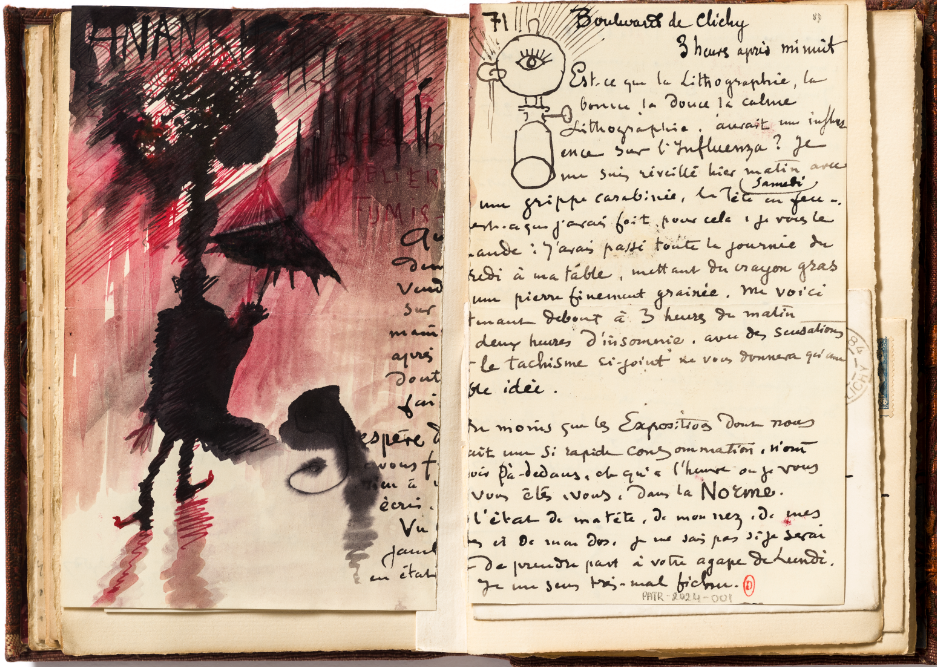 ANAN
FUMIS
Qu
Vend
sur
matin
après
Dont
fai
espère d
vous f
rien à v
écris.
Vu
jamb
en état
71 Boulevard de Clichy
3 heures après minuit
Est-ce que la Lithographie, la
bonne la Douce la calme
Lithographie, aurait une influ
ence sur l'Influenza ? Je
me suis réveillé hier matin avec
Samedi
une grippe carabinée, la Tête en feu -.
est-ce que j'avais fait, pour cela, je vous le
ande : J'avais passé toute la journée de
redi à ma table, mettant du crayon gras
une pierre finement grainée. Me voici
tenant debout à 3 heures du matin
deux heures d'insomnie, avec des sensations
le tachisme ci-joint ne vous donnera qu'une
ble idée.
moins que les Expositions Dont nous
ait une si rapide consommation, n'ont
là-dedans, et qu'à l'heure où je vous
vous êtes, vous, Dans la Norme.
l'état de ma tête, de mon nez, de mes
et de mon dos, je ne sais pas si je serai
De prendre part à votre agape de Lundi.
Je me sens très-mal fichu.
PATR-2024-001